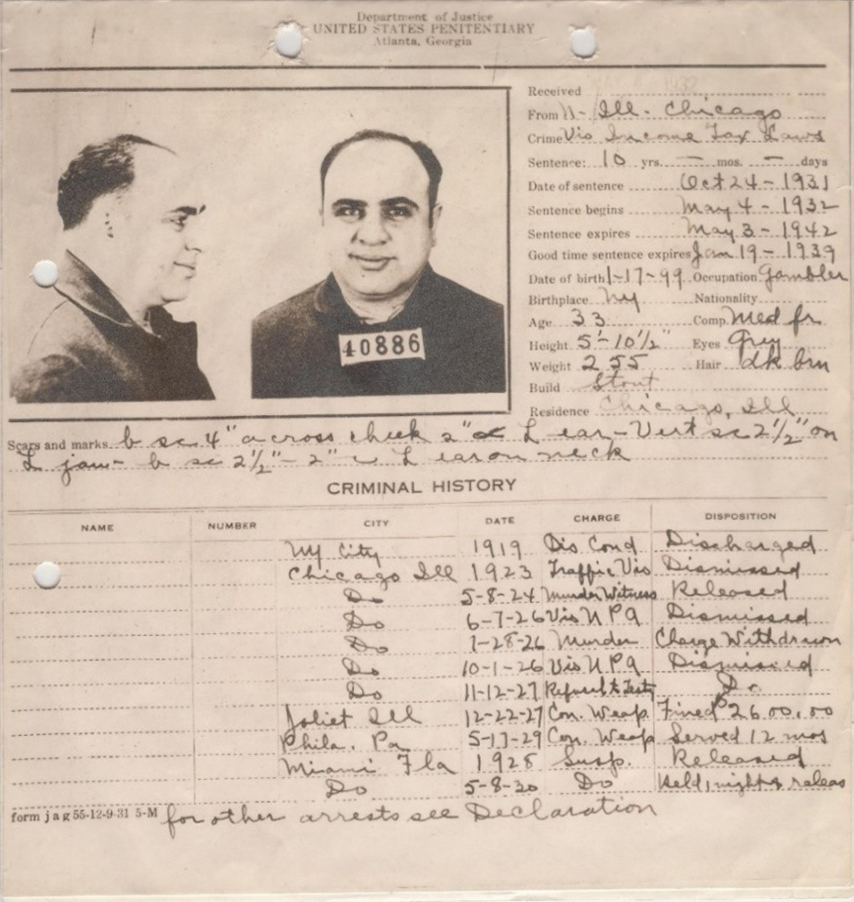 Department of Justice
UNITED STATES PENITENTIARY
Atlanta, Georgia
Received
From N- Ill- Chicago
Crime Vio Income Tax Laws
Sentence: 10 yrs. — mos. — days
Date of sentence Oct 24-1931
Sentence begins May 4-1932
Sentence expires May 3-1942
Good time sentence expires Jan 19-1939
Date of birth 1-17-99 Occupation Gambler
Birthplace NY Nationality
Age 33 Comp. Med fr
Height 5'-10½" Eyes Grey
Weight 255 Hair dk brn
Build Stout
Residence Chicago, Ill
40886
Scars and marks b sc 4" across cheek 2" L ear-Vert sc 2½" on
L jaw- b sc 2½"-2" L ear on neck
CRIMINAL HISTORY
NAME NUMBER CITY DATE CHARGE DISPOSITION
NY City 1919 Dis Cond Discharged
Chicago Ill 1923 Traffic Vio Dismissed
Do 5-8-24 Murder Witness Released
Do 6-7-26 Vio NPA Dismissed
Do 7-28-26 Murder Charge Withdrawn
Do 10-1-26 Vio NPA Dismissed
Do 11-12-27 Refusal to Testy Do
Joliet Ill 12-22-27 Con. Weap Fined $2600.00
Phila. Pa 5-17-29 Con. Weap Served 12 mos
Miami Fla 1928 Susp. Released
Do 5-8-30 Do Held, night & releas
form j a g 55-12-9-31 5-M for other arrests see Declaration